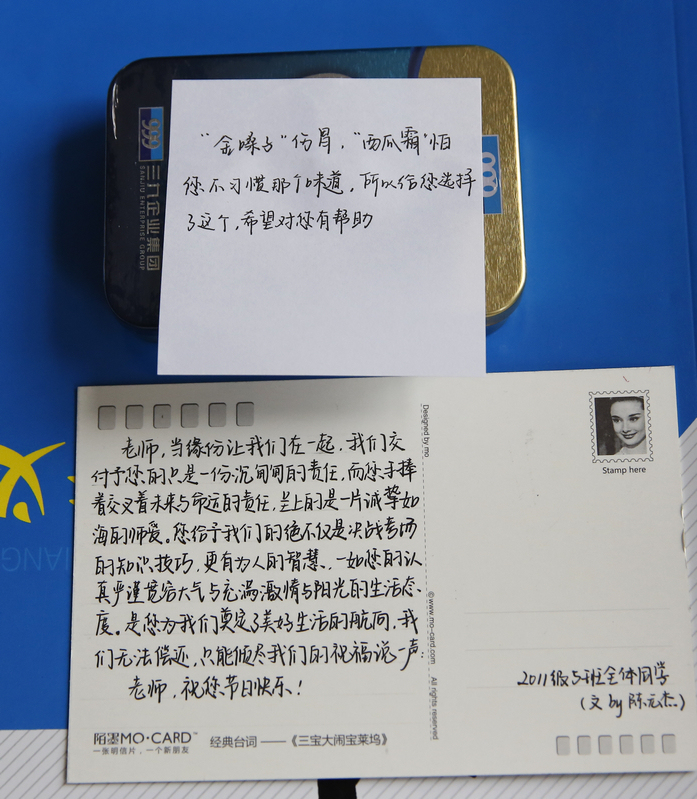 999
三九企业集团
SANJIU ENTERPRISE GROUP
“金嗓子”伤胃，“西瓜霜”怕
您不习惯那个味道，所以给您选择
了这个，希望对您有帮助
老师，当缘份让我们在一起，我们交
付予您的只是一份沉甸甸的责任，而您手捧
着交叉着未来与命运的责任，呈上的是一片诚挚如
海的师爱。您给予我们的绝不仅是决战考场
的知识技巧，更有为人的智慧、一如您的认
真严谨宽容大气与充满激情与阳光的生活态
度。是您为我们奠定了美好生活的航向，我
们无法偿还，只能倾尽我们的祝福说一声：
老师，祝您节日快乐！
陌墨MO·CARD™
一张明信片，一个新朋友
经典台词 ——《三宝大闹宝莱坞》
Designed by mo
©www.mo-card.com All rights reserved
Stamp here
2011级5班全体同学
（文 by 陈元杰）